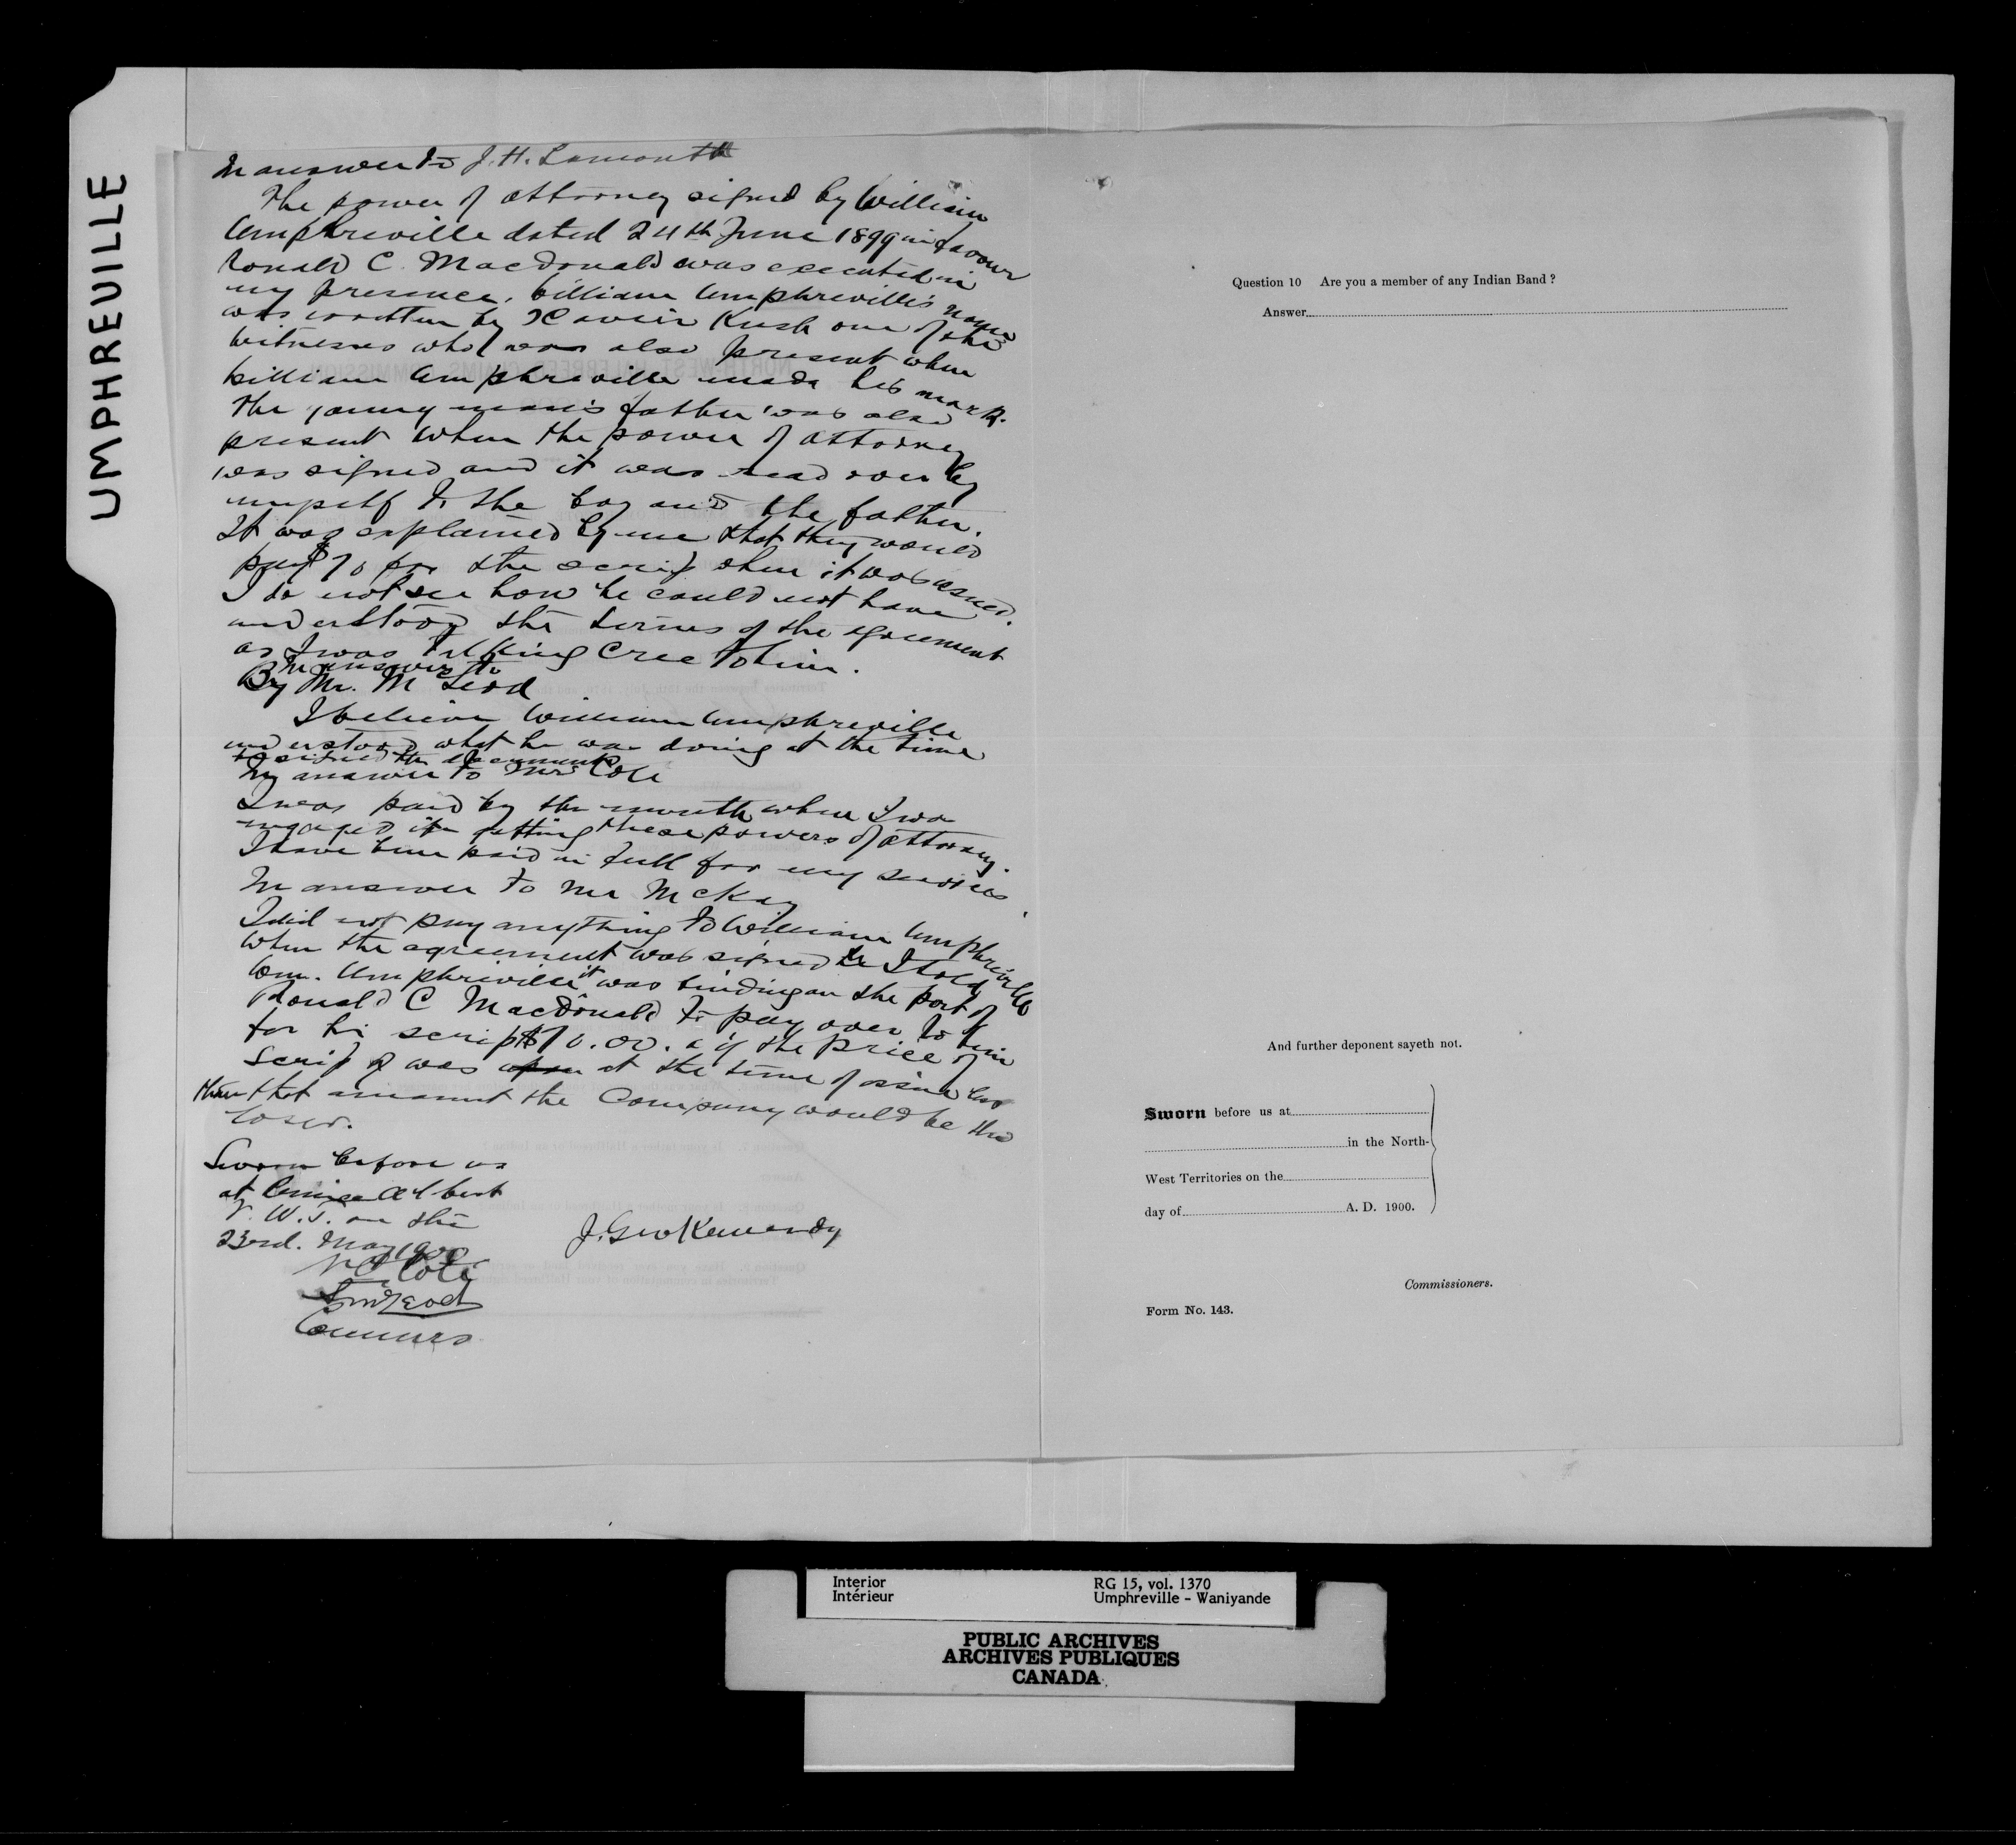 UMPHREVILLE
In answer to J. H. Lamonth
The power of attorney signed by William
Umphreville dated 24th June 1899 in favour
Ronald C. MacDonald was executed in
my presence. William Umphreville's name
was written by Xavier Kush one of the
witnesses who was also present when
William Umphreville made his mark.
The young man's father was also
present when the power of attorney
was signed and it was read over by
myself to the boy and the father.
It was explained by me that they would
pay $70 for the scrip when it was issued.
I do not see how he could not have
understood the terms of the agreement
as I was talking Cree to him.
In answer to
By Mr. McLeod
I believe William Umphreville
understood what he was doing at the time
he signed the document
In answer to Mr Coté
I was paid by the month when I was
engaged in getting these powers of attorney.
I have been paid in full for my services.
In answer to Mr McKay
I did not pay anything to William Umphreville
when the agreement was signed I told
Wm. Umphreville it was binding on the part of
Ronald C MacDonald to pay over to him
for his scrip $70.00. & if the price of
scrip was at the time of issue less
than that amount the Company would be the
loser.
Sworn before us
at Prince Albert
N. W. T. on the
23rd. May 1900
N O Coté
McLeod
Commrs
J. Geo Kennedy
Question 10 Are you a member of any Indian Band ?
Answer
And further deponent sayeth not.
Sworn before us at
in the North-
West Territories on the
day of A. D. 1900.
Commissioners.
Form No. 143.
Interior RG 15, vol. 1370
Intérieur Umphreville - Waniyande
PUBLIC ARCHIVES
ARCHIVES PUBLIQUES
CANADA